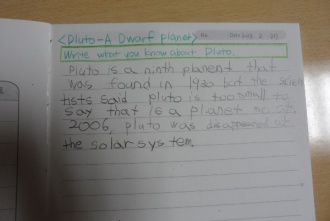 <Pluto-A Dwarf planet>
Write what you know about Pluto.
Pluto is a ninth planent that
was found in 1930 but the scien
tists said pluto is too small to
say that is a planet so at
2006, pluto was disappeared at
the solar system.